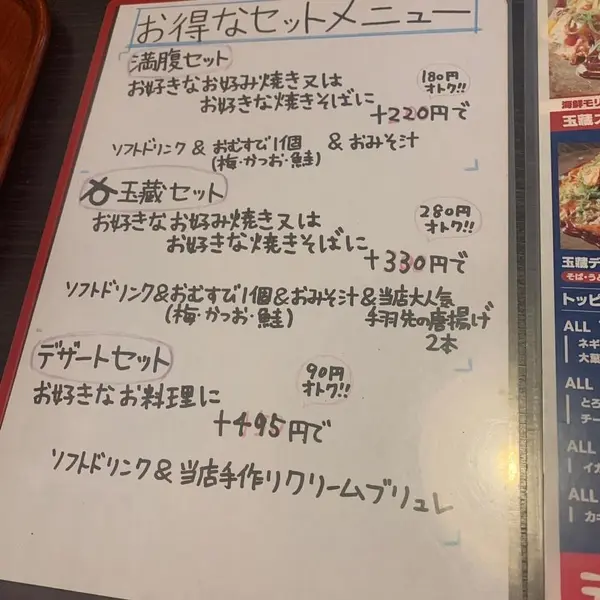 お得なセットメニュー
満腹セット
お好きなお好み焼き又は
お好きな焼きそばに
180円
オトク!!
+220円で
ソフトドリンク & おむすび1個 & おみそ汁
(梅・かつお・鮭)
玉蔵セット
お好きなお好み焼き又は
お好きな焼きそばに
280円
オトク!!
+330円で
ソフトドリンク&おむすび1個&おみそ汁&当店大人気
(梅・かつお・鮭) 手羽先の唐揚げ
2本
デザートセット
90円
オトク!!
お好きなお料理に
+495円で
ソフトドリンク&当店手作りクリームブリュレ
海鮮モリ
玉蔵ス
玉蔵デ
そば・うど
トッピ
ALL
ネギ
大葉
ALL
とろ
チー
ALL
イカ
ALL
カキ